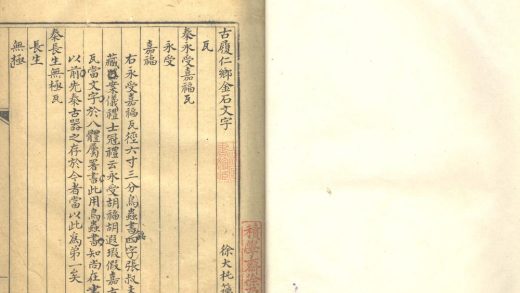 古履仁鄉金石文字
徐大
瓦
秦永受嘉福瓦
永受
嘉福
右永受嘉福瓦徑六寸三分鳥蟲書四字張叔未
藏器案儀禮士冠禮云永受胡福胡遐瑕假嘉古
瓦當文字於八體屬署書此用鳥蟲書知尚在
以前先秦古器之存於今者當以此為第一矣
秦長生無極瓦
長生
無極